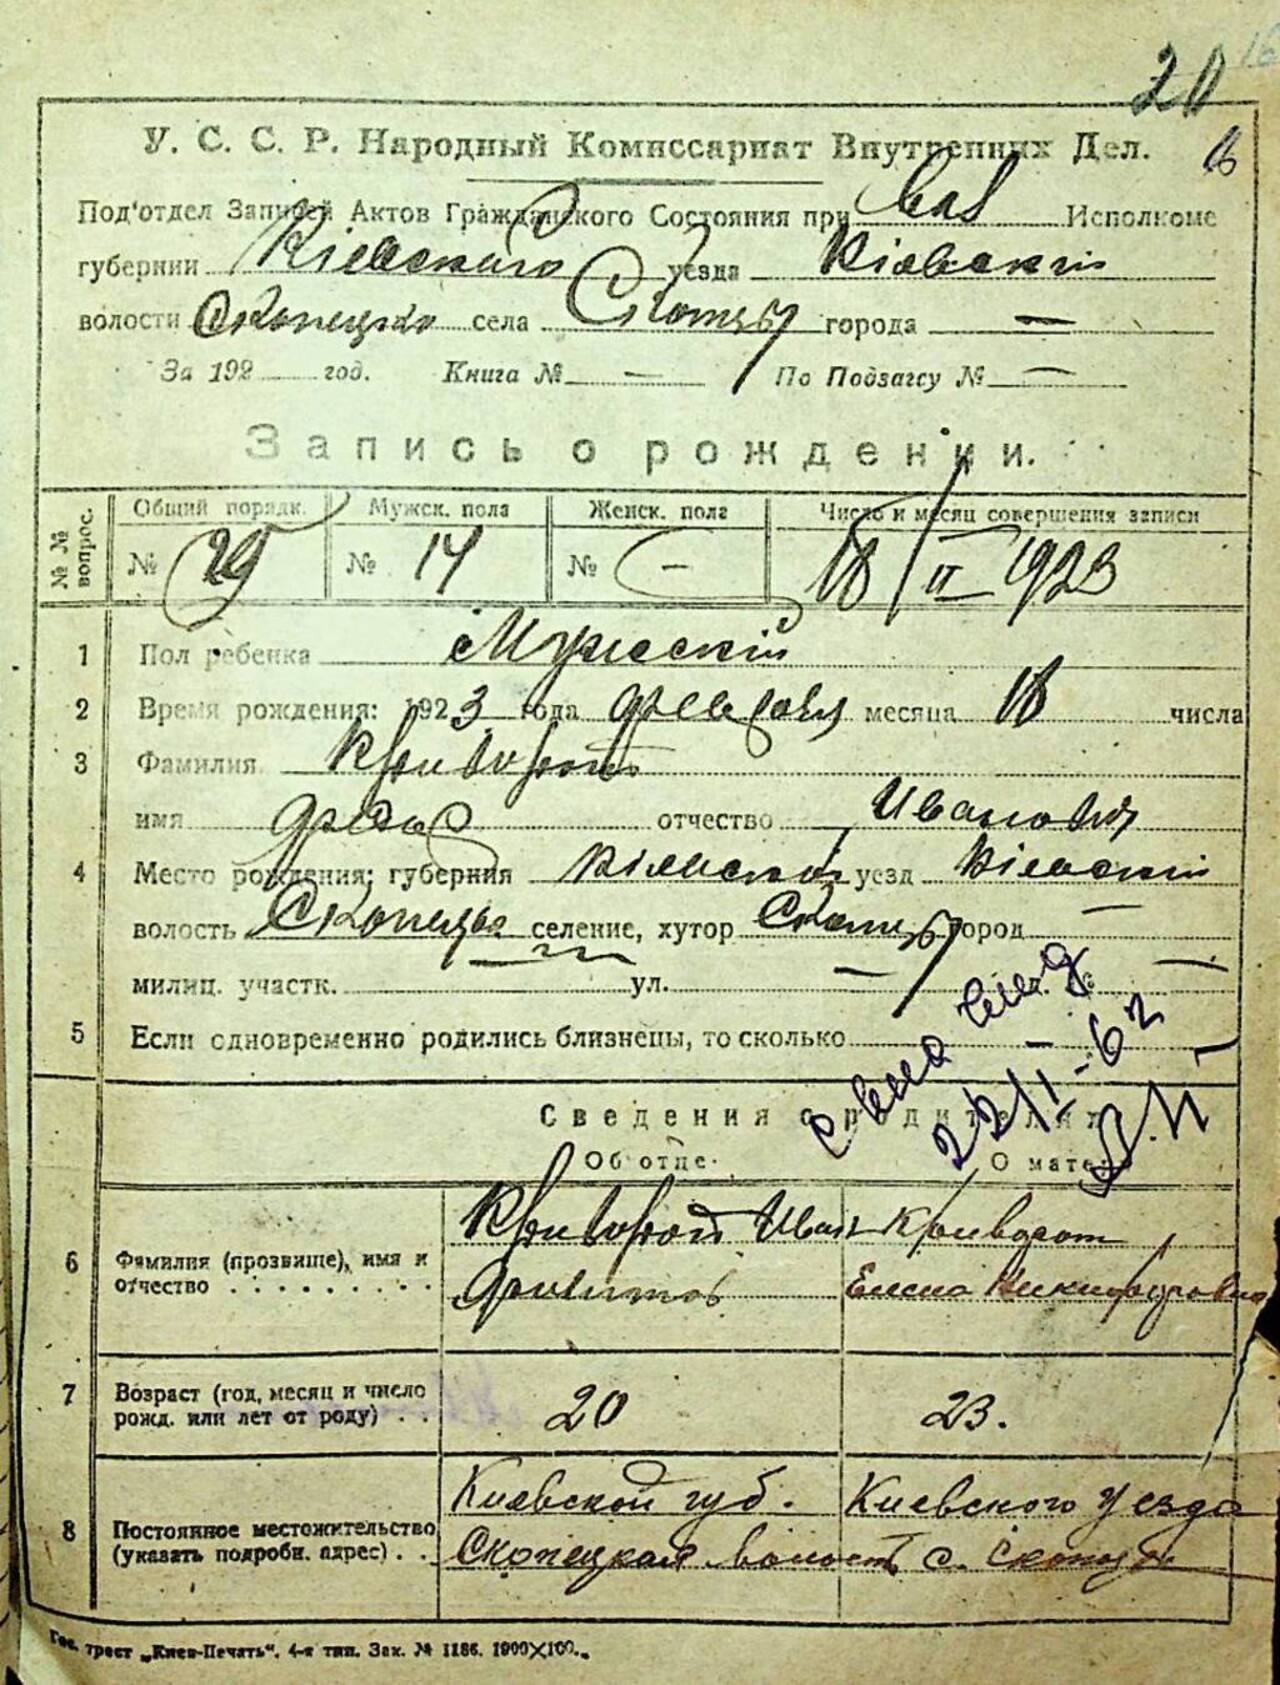 20
16
У. С. С. Р. Народный Комиссариат Внутренних Дел.
Под'отдел Записей Актов Гражданского Состояния при Исполкоме
губернии Кіевскаго уезда Кіевскій
волости Скопецко села Скопцы города —
За 192 год. Книга № — По Подзагсу № —
Запись о рождении.
№ № вопрос. Общий порядк. Мужск. пола Женск. пола Число и месяц совершения записи
№ 29 № 14 № - 18/II 1923
1 Пол ребенка Мужескій
2 Время рождения: 1923 года февраля месяца 18 числа
3 Фамилия Криворот
имя отчество Иванович
4 Место рождения: губерния Кіевской уезд Кіевскій
волость Скопецка селение, хутор Скопцы город —
милиц. участк. ул. — —
5 Если одновременно родились близнецы, то сколько
22/I-62
Сведения о родителях
Об отце. О матери
6 Фамилия (прозвище), имя и отчество Криворот Иван Криворот
Елена Никифоровна
7 Возраст (год, месяц и число рожд. или лет от роду) 20 23.
8 Постоянное местожительство (указать подробн. адрес) Киевской губ. Киевского уезда
Скопецкая волость с. Скопцы
Гос. трест „Киев-Печать“. 4-я тип. Зак. № 1186. 1900×100.